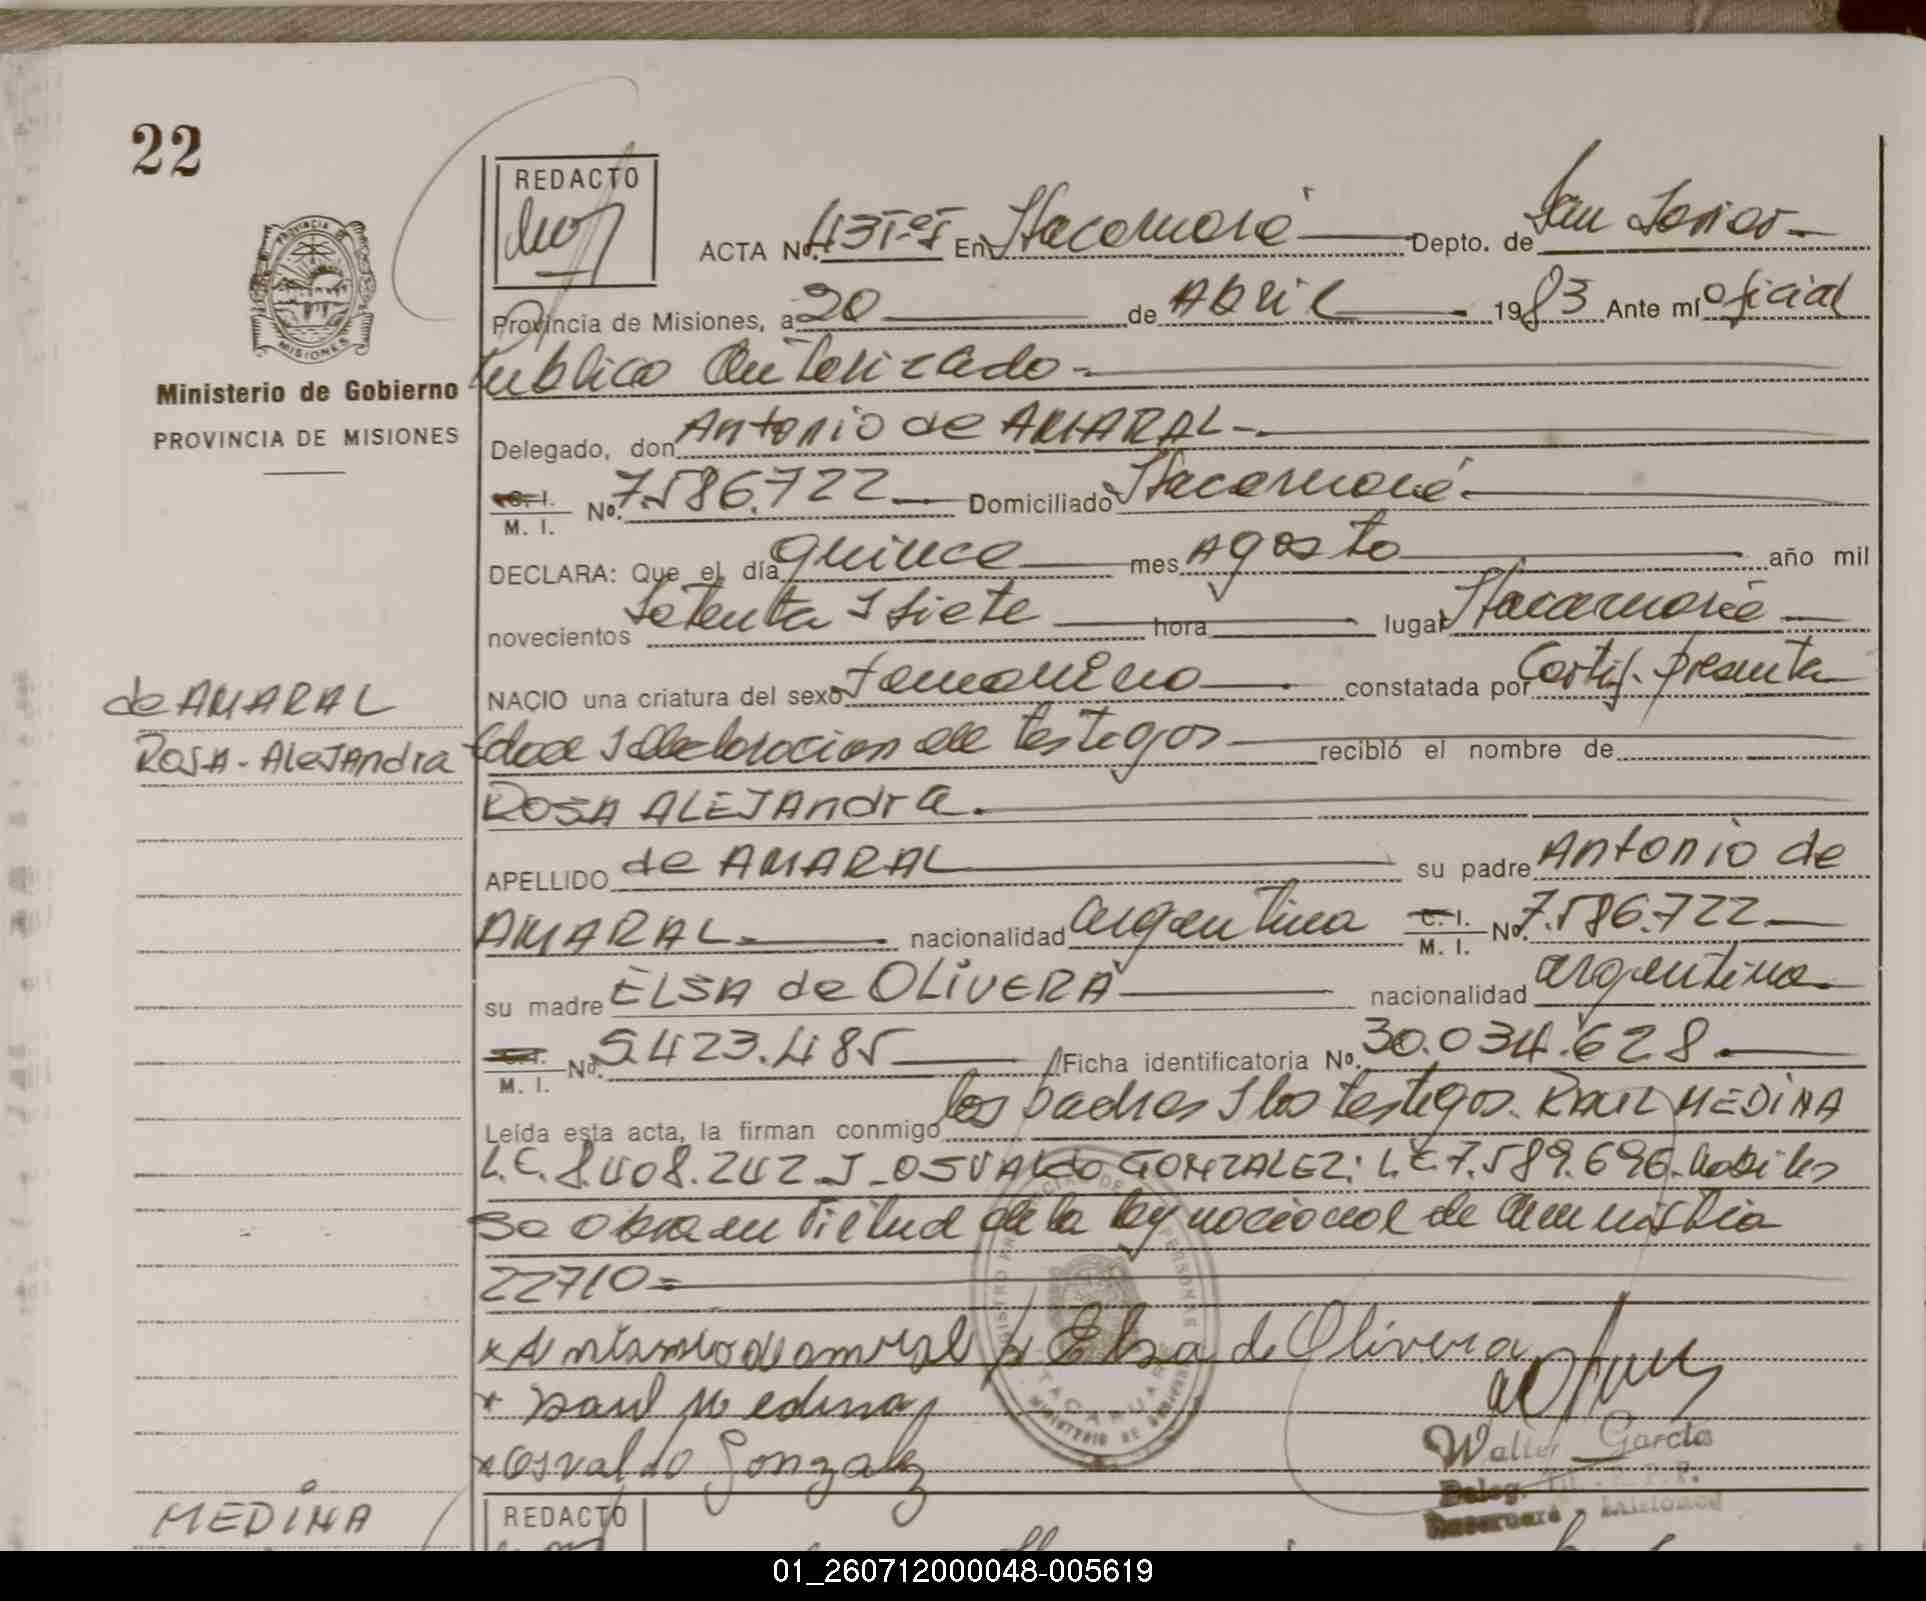 22
REDACTO
ACTA No. 43 En Itacaruaré Depto. de San Javier
Provincia de Misiones, a 20 de Abril 1983 Ante mí oficial
Publico Autorizado
PROVINCIA DE MISIONES
Ministerio de Gobierno
PROVINCIA DE MISIONES
Delegado, don Antonio de AMARAL
C. I.
M. I. No. 7.586.722 Domiciliado Itacaruaré
DECLARA: Que el día quince mes Agosto año mil
novecientos Setenta y siete hora lugar Itacaruaré
NACIO una criatura del sexo femenino constatada por Certif. presunta
edad y declaracion de testigos recibió el nombre de
de AMARAL
ROSA - ALEJAndra
ROSA ALEJAndra
APELLIDO de AMARAL su padre Antonio de
AMARAL nacionalidad argentina C. I.
M. I. No. 7.586.722
su madre ELSA de OLIVERA nacionalidad argentina
M. I. No. 5.423.485 Ficha identificatoria No. 30.034.628
Leída esta acta, la firman conmigo los padres y los testigos. RAUL MEDINA
L.E. 8.408.242 y OSVALDO GONZALEZ: L.E. 7.589.696 habiles
se obra en virtud de la ley nacional de amnistia
22710
x Antonio de amaral x Elsa de Olivera
x Raul Medina
x Osvaldo Gonzalez
Walter García
MEDINA
REDACTO
01_260712000048-005619